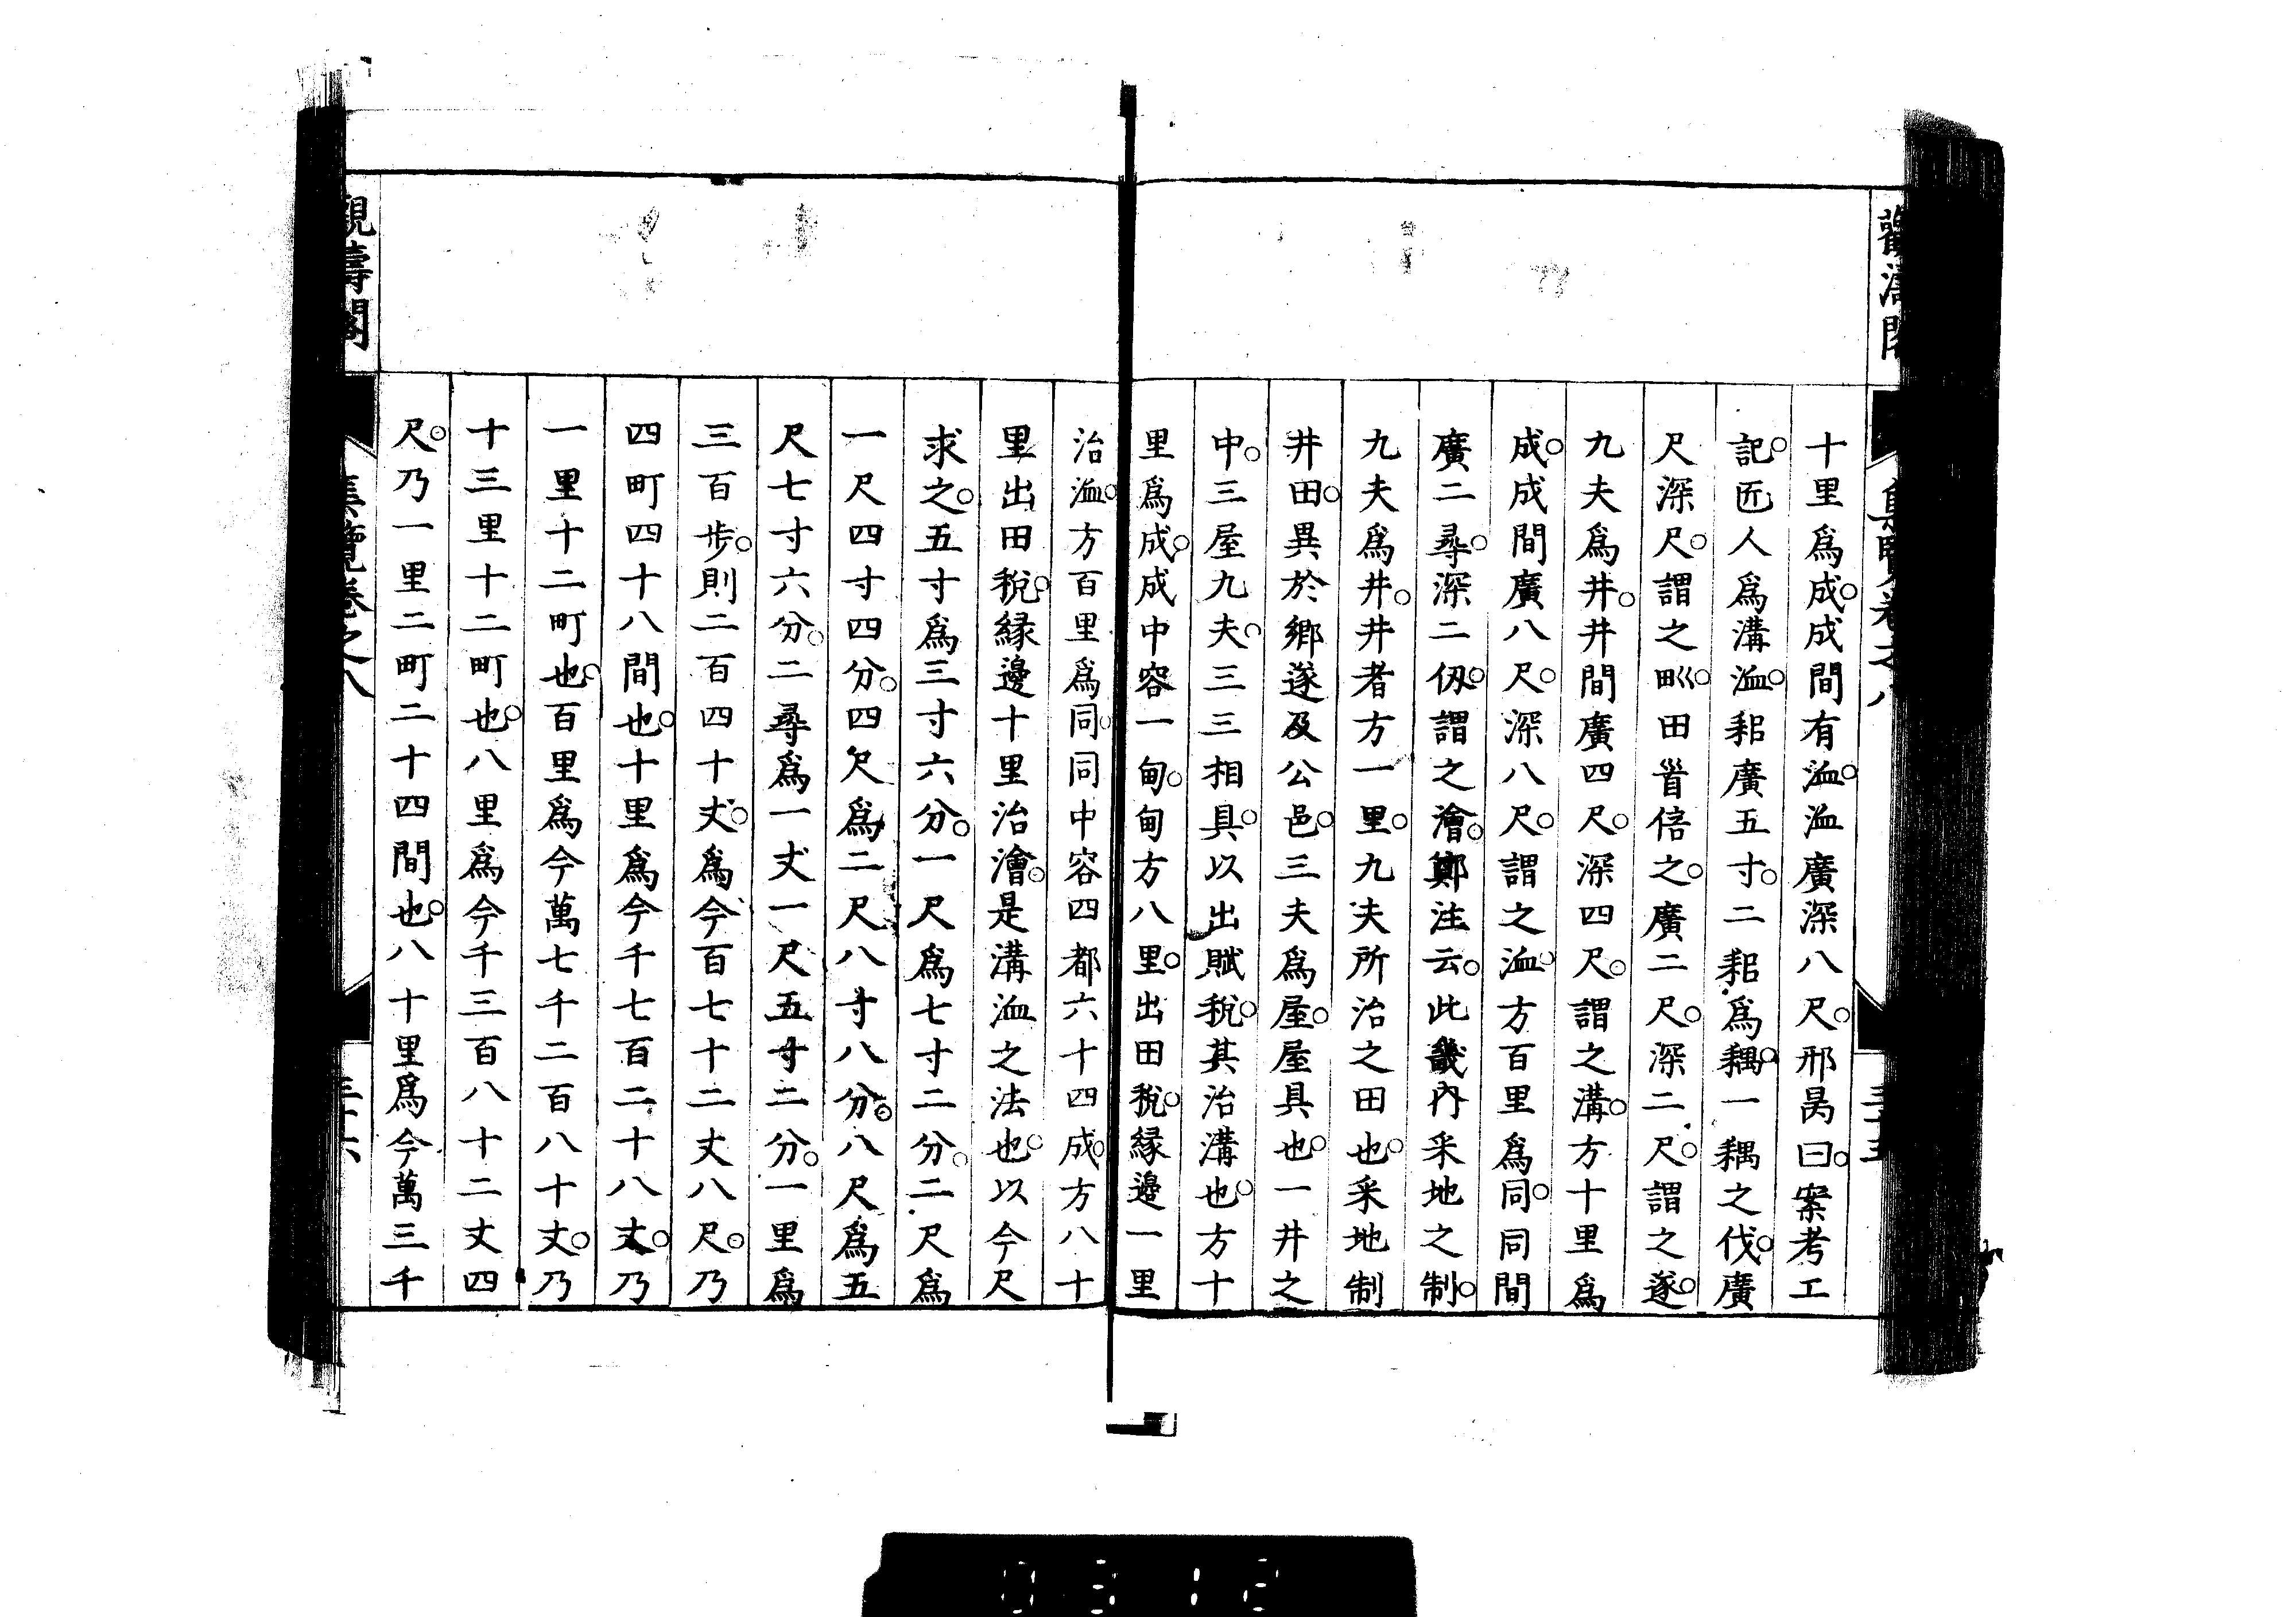 十里爲成。成間有洫。洫廣深八尺。邢昺曰。案考工
記。匠人爲溝洫。耜廣五寸。二耜爲耦。一耦之伐。廣
尺深尺。謂之𤰕。田首倍之。廣二尺。深二尺。謂之遂。
九夫爲井。井間廣四尺。深四尺。謂之溝。方十里爲
成。成間廣八尺。深八尺。謂之洫。方百里爲同。同間
廣二尋。深二仭。謂之澮。鄭注云。此畿內采地之制。
九夫爲井。井者方一里。九夫所治之田也。采地制
井田。異於鄉遂及公邑。三夫爲屋。屋具也。一井之
中。三屋九夫。三三相具。以出賦稅。其治溝也。方十
里爲成。成中容一甸。甸方八里。出田稅。緣邊一里
治洫。方百里爲同。同中容四都六十四成。方八十
里出田稅。緣邊十里治澮。是溝洫之法也。以今尺
求之。五寸爲三寸六分。一尺爲七寸二分。二尺爲
一尺四寸四分。四尺爲二尺八寸八分。八尺爲五
尺七寸六分。二尋爲一丈一尺五寸二分。一里爲
三百步。則二百四十丈。爲今百七十二丈八尺。乃
四町四十八間也。十里爲今千七百二十八丈。乃
一里十二町也。百里爲今萬七千二百八十丈。乃
十三里十二町也。八里爲今千三百八十二丈四
尺。乃一里二町二十四間也。八十里爲今萬三千
觀濤閣
集覽卷之八
三十六